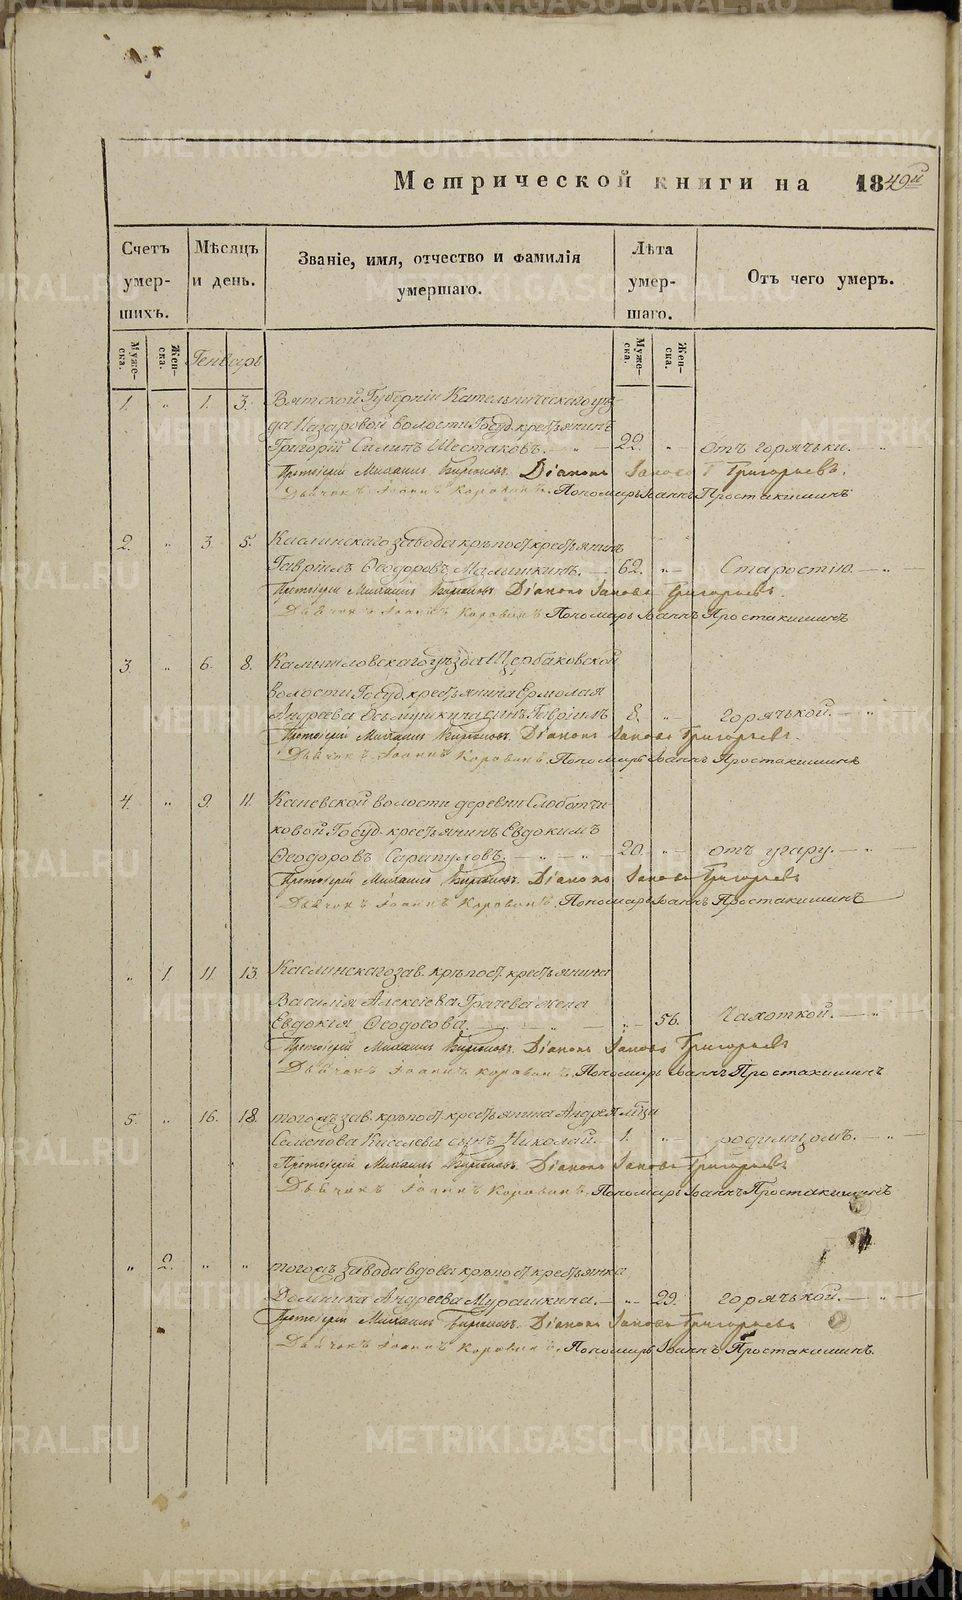 METRIKI.GASO-URAL.RU
Метрической книги на 1849й
Счетъ умер-шихъ.
Мѣсяцъ и день.
Званіе, имя, отчество и фамилія умершаго.
Лѣта умер-шаго.
Отъ чего умеръ.
Муже-ска.
Жен-ска.
Генварь
Муже-ска.
Жен-ска.
1. " 1. 3. Вятской Губерніи Котельническаго уѣз-
да Назаровой волости Госуд. крестьянинъ
Григорій Силинъ Шестаковъ. 22. " отъ горячьки.
Протоіерей Михаилъ Діаконъ Іаковъ Григорьевъ.
Дьячокъ Іоаннъ Коровинъ. Пономарь Іоаннъ Простакишинъ
2. " 3. 5. Каслинскаго завода крѣпост. крестьянинъ
Гавріилъ Ѳеодоровъ Малышкинъ. 62. " Старостію.
Протоіерей Михаилъ Діаконъ Іаковъ Григорьевъ.
Дьячокъ Іоаннъ Коровинъ Пономарь Іоаннъ Простакишинъ
3. " 6. 8. Камышловскаго уѣзда Щербаковской
волости Госуд. крестьянина Ермолая
Андреева сынъ Гавріилъ 8. " горячькой.
Протоіерей Михаилъ Діаконъ Іаковъ Григорьевъ.
Дьячокъ Іоаннъ Коровинъ Пономарь Іоаннъ Простакишинъ
4. " 9. 11. Каневской волости деревни Слободчи-
ковой Госуд. крестьянинъ Евдокимъ
Ѳеодоровъ Сарапуловъ. 20. " отъ угару.
Протоіерей Михаилъ Діаконъ Іаковъ Григорьевъ
Дьячокъ Іоаннъ Коровинъ Пономарь Іоаннъ Простакишинъ
" 1 11. 13. Каслинскаго зав. крѣпост. крестьянина
Василія Алексіева Грачева жена
Евдокія Ѳеодосова. " 56. Чахоткой.
Протоіерей Михаилъ Діаконъ Іаковъ Григорьевъ
Дьячокъ Іоаннъ Коровинъ Пономарь Іоаннъ Простакишинъ
5. " 16. 18. тогожъ зав. крѣпост. крестьянина Андрея
Семенова Киселева сынъ Николай. 1. " родимцомъ.
Протоіерей Михаилъ Діаконъ Іаковъ Григорьевъ
Дьячокъ Іоаннъ Коровинъ Пономарь Іоаннъ Простакишинъ
" 2. " " тогожъ завода вдова крѣпост. крестьянка
Домника Андреева Мурашкина. " 29. горячькой.
Протоіерей Михаилъ Діаконъ Іаковъ Григорьевъ
Дьячокъ Іоаннъ Коровинъ. Пономарь Іоаннъ Простакишинъ.